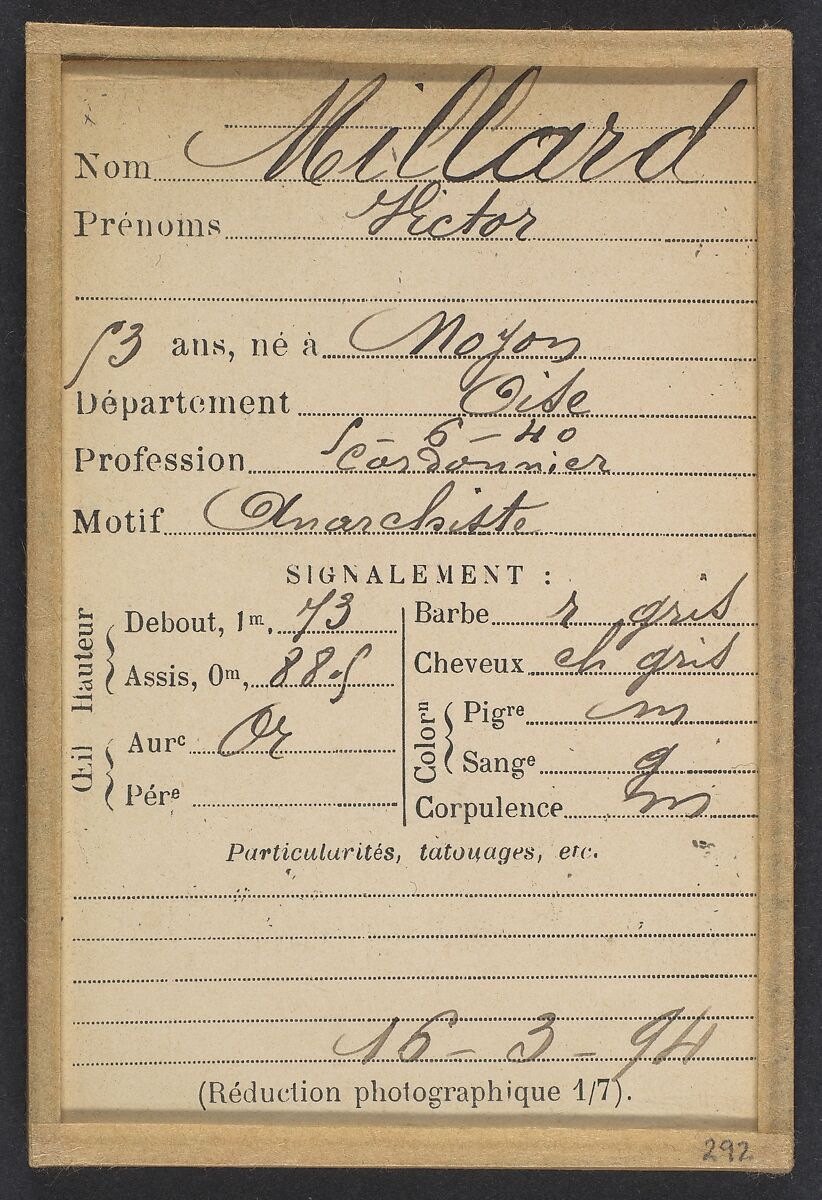 Nom Millard
Prénoms Victor
53 ans, né à Noyon
Département Oise
5-6-40
Profession Cordonnier
Motif Anarchiste
SIGNALEMENT :
Hauteur
Debout, 1m, 73
Assis, 0m, 88.5
Œil
Aurᵉ Or
Pérᵉ
Barbe r gris
Cheveux ch gris
Colorⁿ
Pigʳᵉ m
Sangᵉ g
Corpulence m
Particularités, tatouages, etc.
16-3-94
(Réduction photographique 1/7).
292